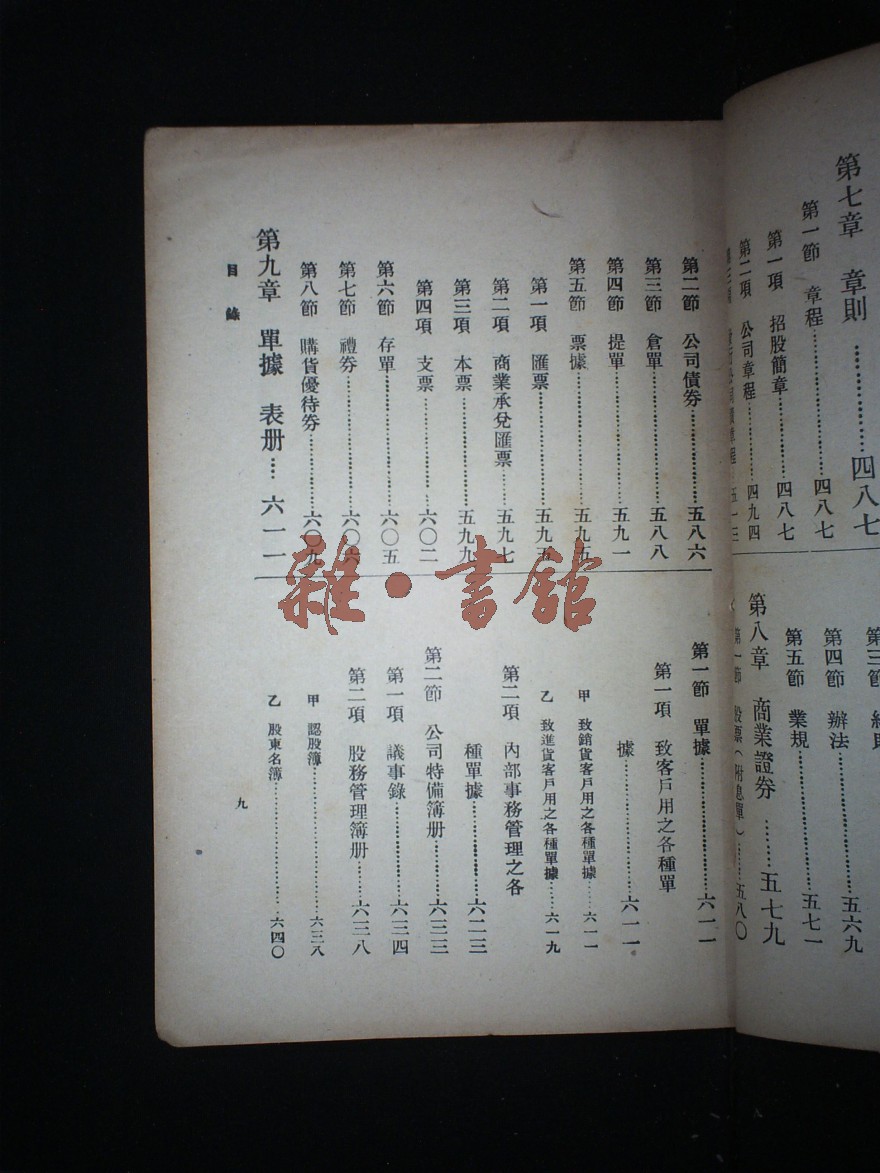 第七章　章則…………四八七
第一節　章程…………四八七
第一項　招股簡章…………四八七
第二項　公司章程…………四九四
第三節　細則
第四節　辦法…………五六九
第五節　業規…………五七一
第八章　商業證券…………五七九
第一節　股票（附息單）……五八〇
第二節　公司債券…………五八六
第三節　倉單…………五八八
第四節　提單…………五九一
第五節　票據…………五九五
第一項　匯票…………五九五
第二項　商業承兌匯票……五九七
第三項　本票…………五九九
第四項　支票…………六〇二
第六節　存單…………六〇五
第七節　禮券…………六〇六
第八節　購貨優待券…………六〇九
第九章　單據　表册……六一一
第一節　單據…………六一一
第一項　致客戶用之各種單
據…………六一一
甲　致銷貨客戶用之各種單據……六一一
乙　致進貨客戶用之各種單據……六一九
第二項　內部事務管理之各
種單據…………六二三
第二節　公司特備簿册………六三三
第一項　議事錄…………六三四
第二項　股務管理簿册……六三八
甲　認股簿…………六三八
乙　股東名簿…………六四〇
目錄
九
雜·書館